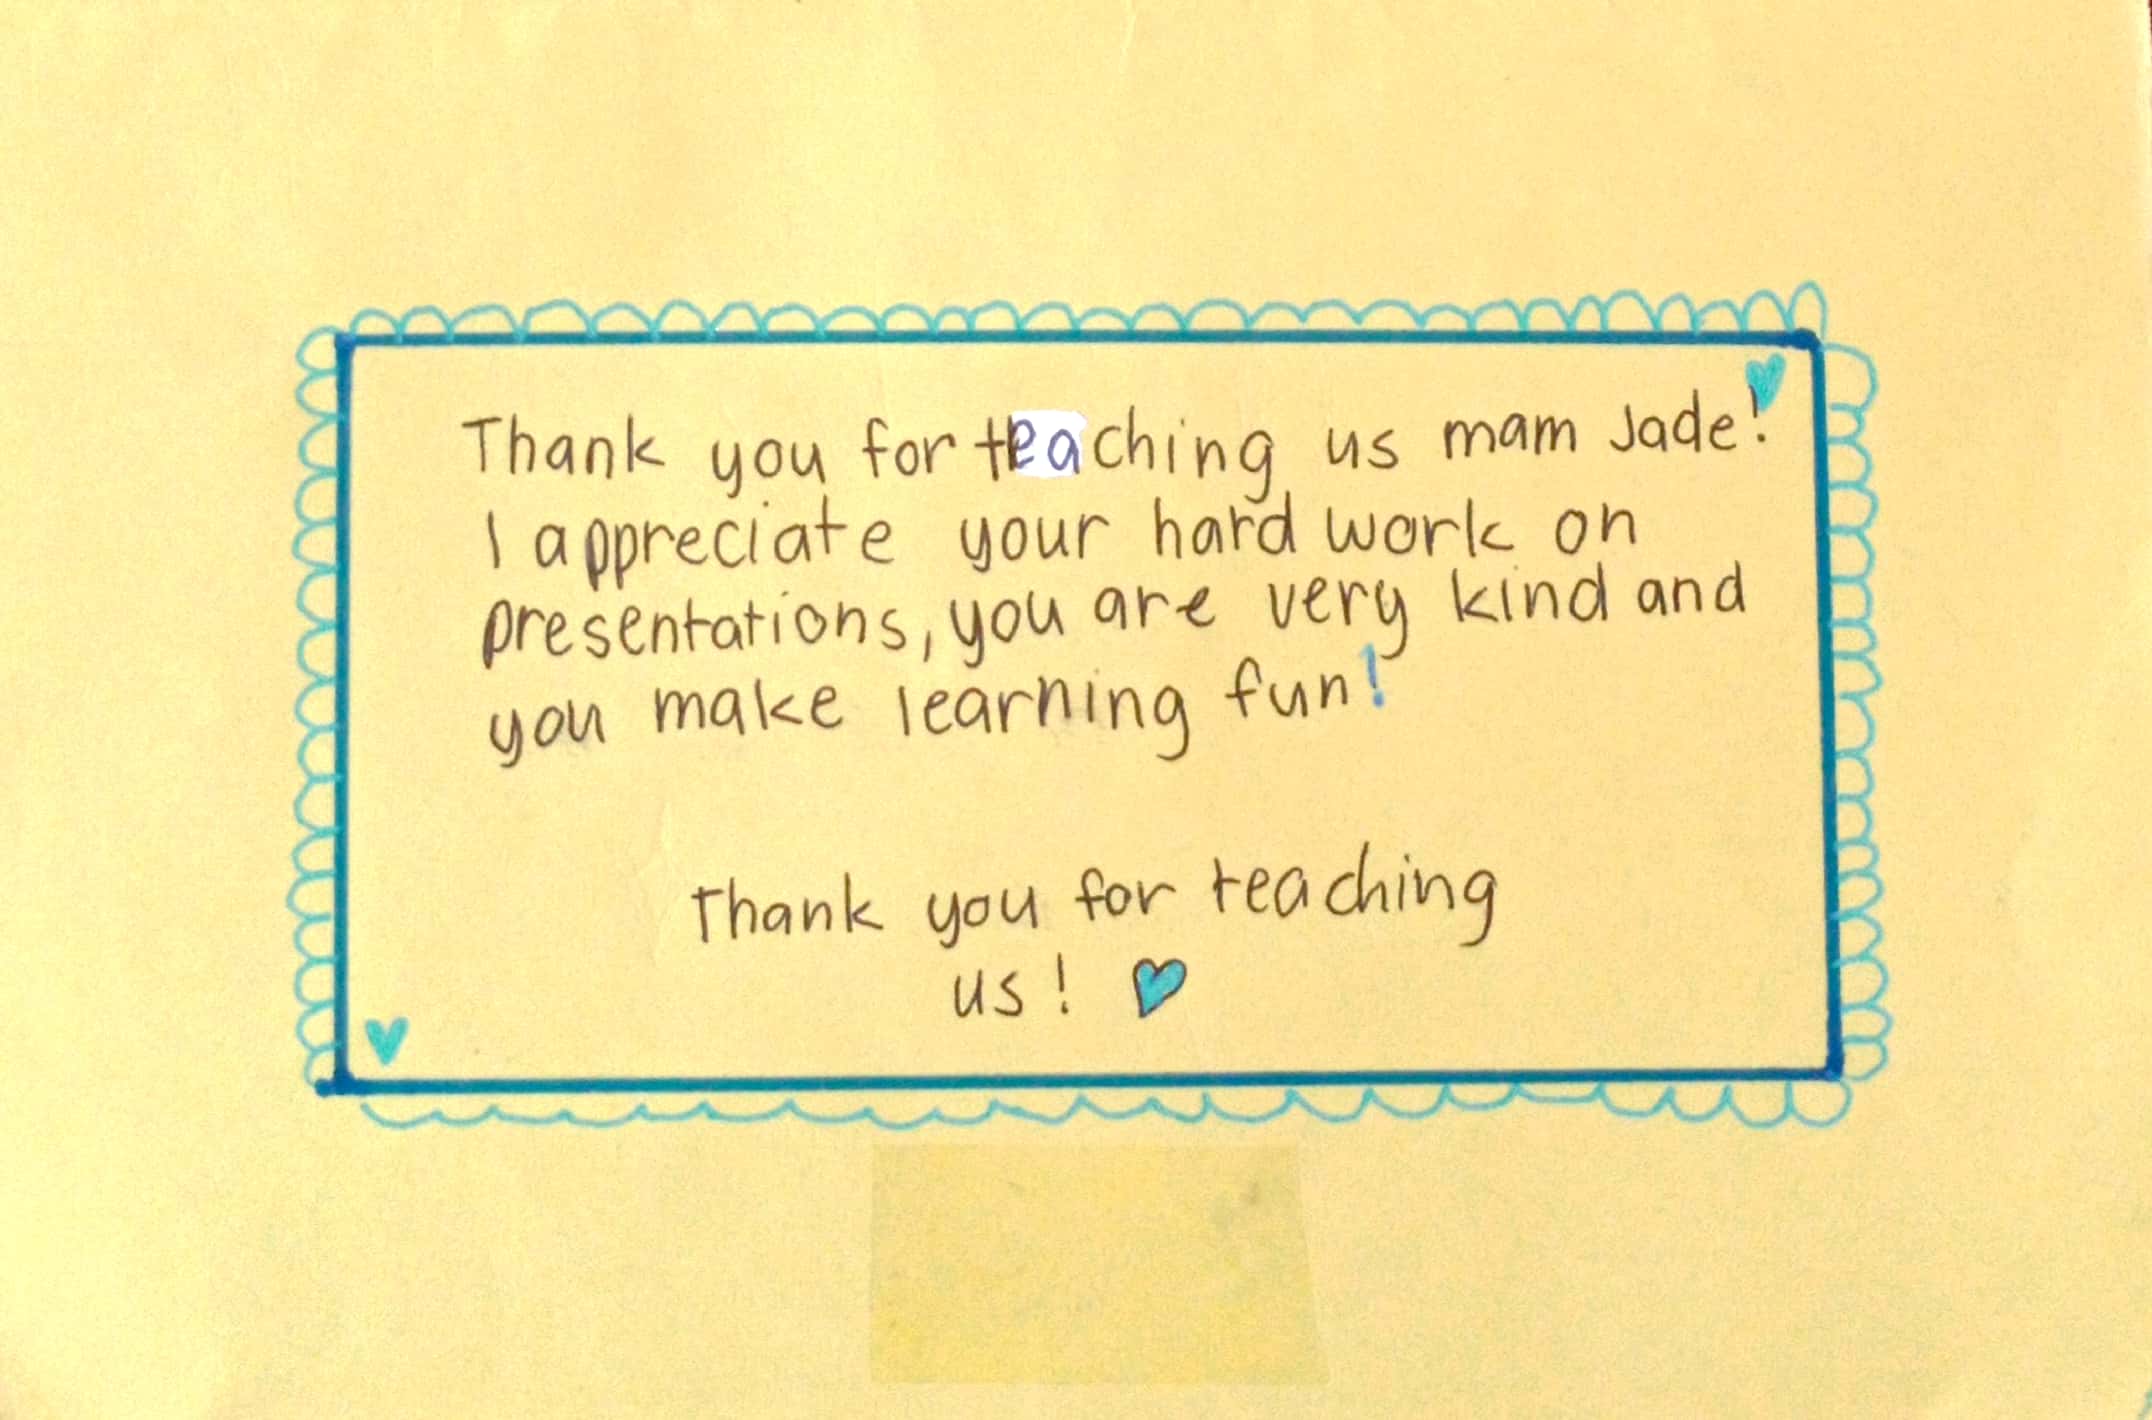 Thank you for teaching us mam Jade!
I appreciate your hard work on
presentations, you are very kind and
you make learning fun!
Thank you for teaching
us!